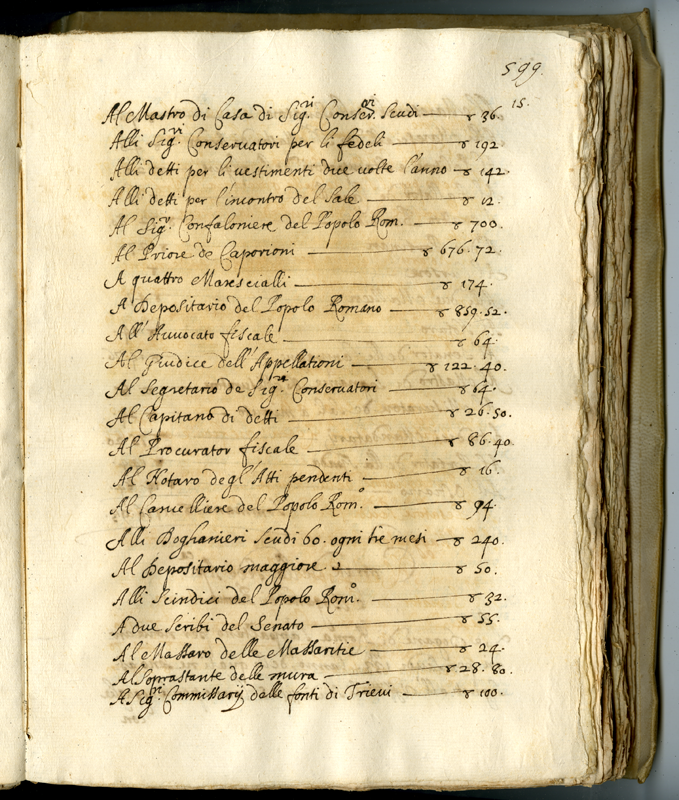 599.
15.
Al Mastro di Casa di Sig.ri Conser.ri Scudi — ꝟ 36.
Alli Sig.ri Conservatori per li fedeli — ꝟ 192
Alli detti per li vestimenti due volte l'anno — ꝟ 142.
Alli detti per l'incontro del Sale — ꝟ 12.
Al Sig.r Confaloniere del Popolo Rom. — ꝟ 700.
Al Priore de Caporioni — ꝟ 676.72.
A quattro Marescialli — ꝟ 174.
A Depositario del Popolo Romano — ꝟ 859.52.
All'Auuocato fiscale — ꝟ 64.
Al Giudice dell'Appellationi — ꝟ 122.40.
Al Segretario de Sig.ri Conservatori — ꝟ 64.
Al Capitano di detti — ꝟ 26.50.
Al Procurator fiscale — ꝟ 86.40.
Al Notaro degl'Atti pendenti — ꝟ 16.
Al Cancelliere del Popolo Rom.o — ꝟ 94.
Alli Doghanieri Scudi 60. ogni tre mesi — ꝟ 240.
Al Depositario maggiore — ꝟ 50.
Alli Scindici del Popolo Rom.o — ꝟ 32.
A due Scribi del Senato — ꝟ 55.
Al Massaro delle Massaritie — ꝟ 24.
Al Soprastante delle mura — ꝟ 28.80.
A Sig.ri Commissarij delle fonti di Trieui — ꝟ 100.